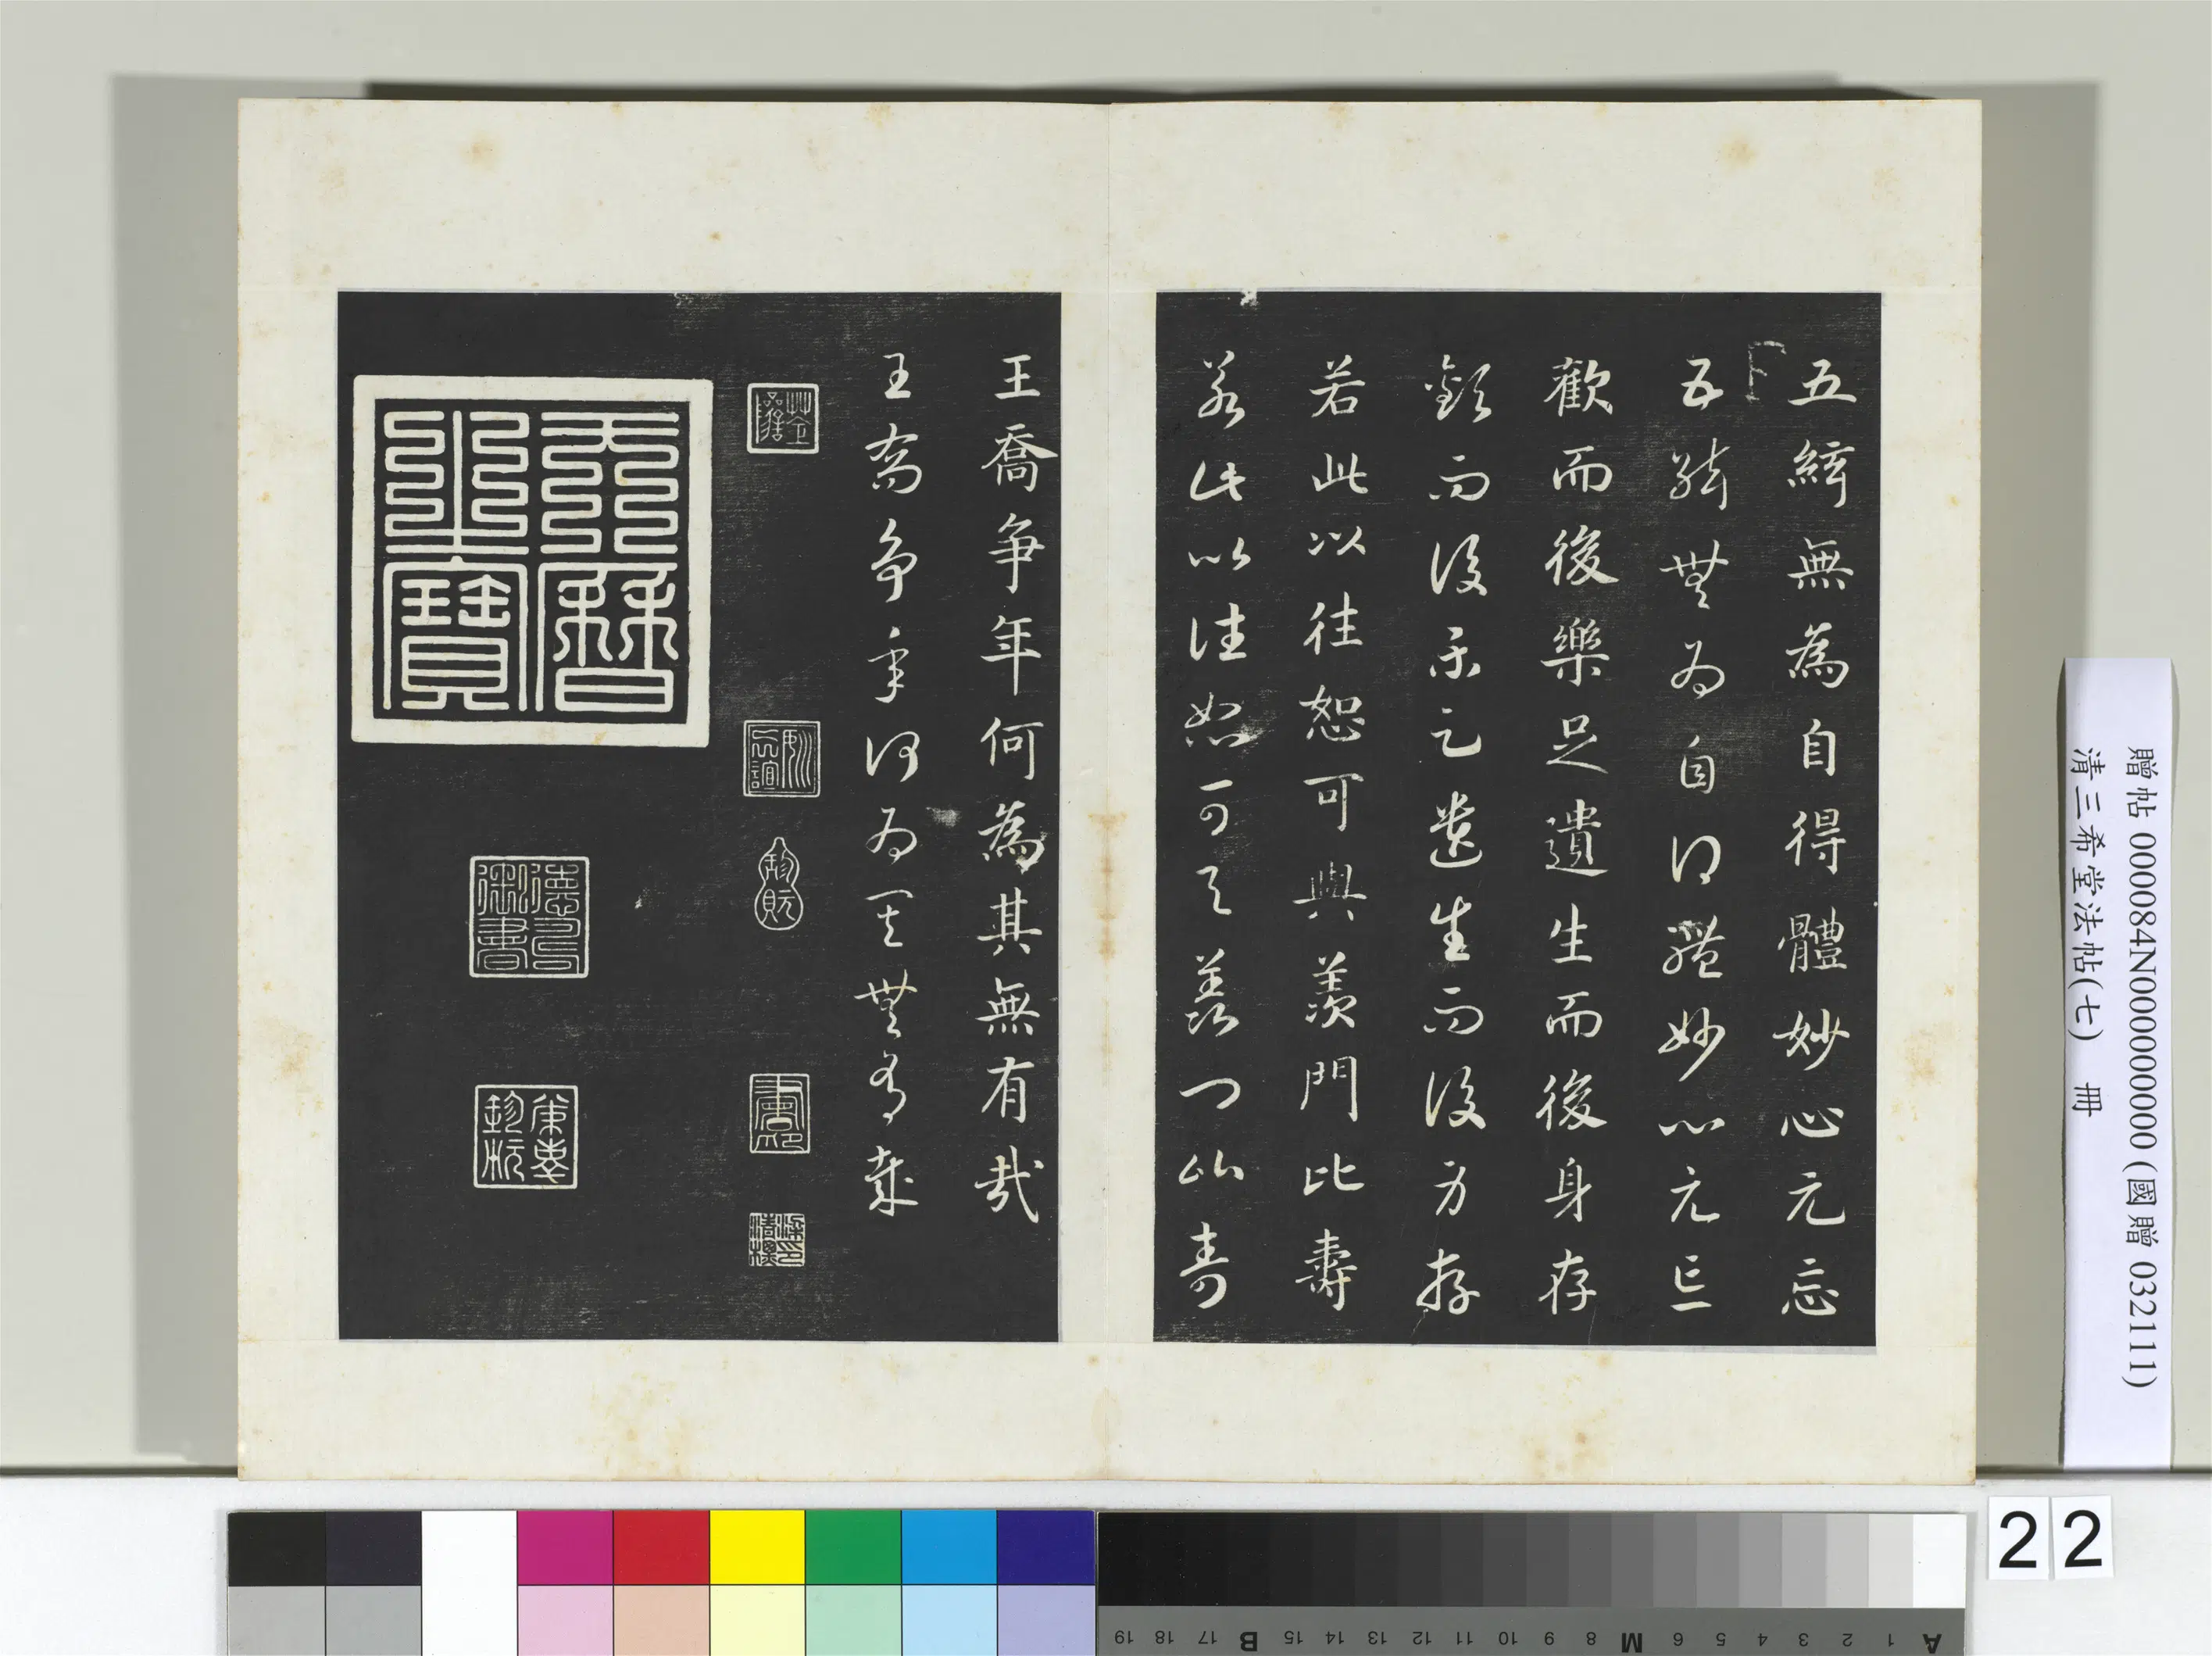 五絃無為自得體妙心元忘
五絃無為自得體妙心元忘
歡而後樂足遺生而後身存
歡而後樂足遺生而後身存
若此以往恕可與羨門比壽
若此以往恕可與羨門比壽
王喬爭年何為其無有哉
王喬爭年何為其無有哉
天曆之寶
贈帖 000084N000000000 (國贈 032111)
清三希堂法帖(七) 冊
22
A 1 2 3 4 5 6 M 8 9 10 11 12 13 14 15 B 17 18 19